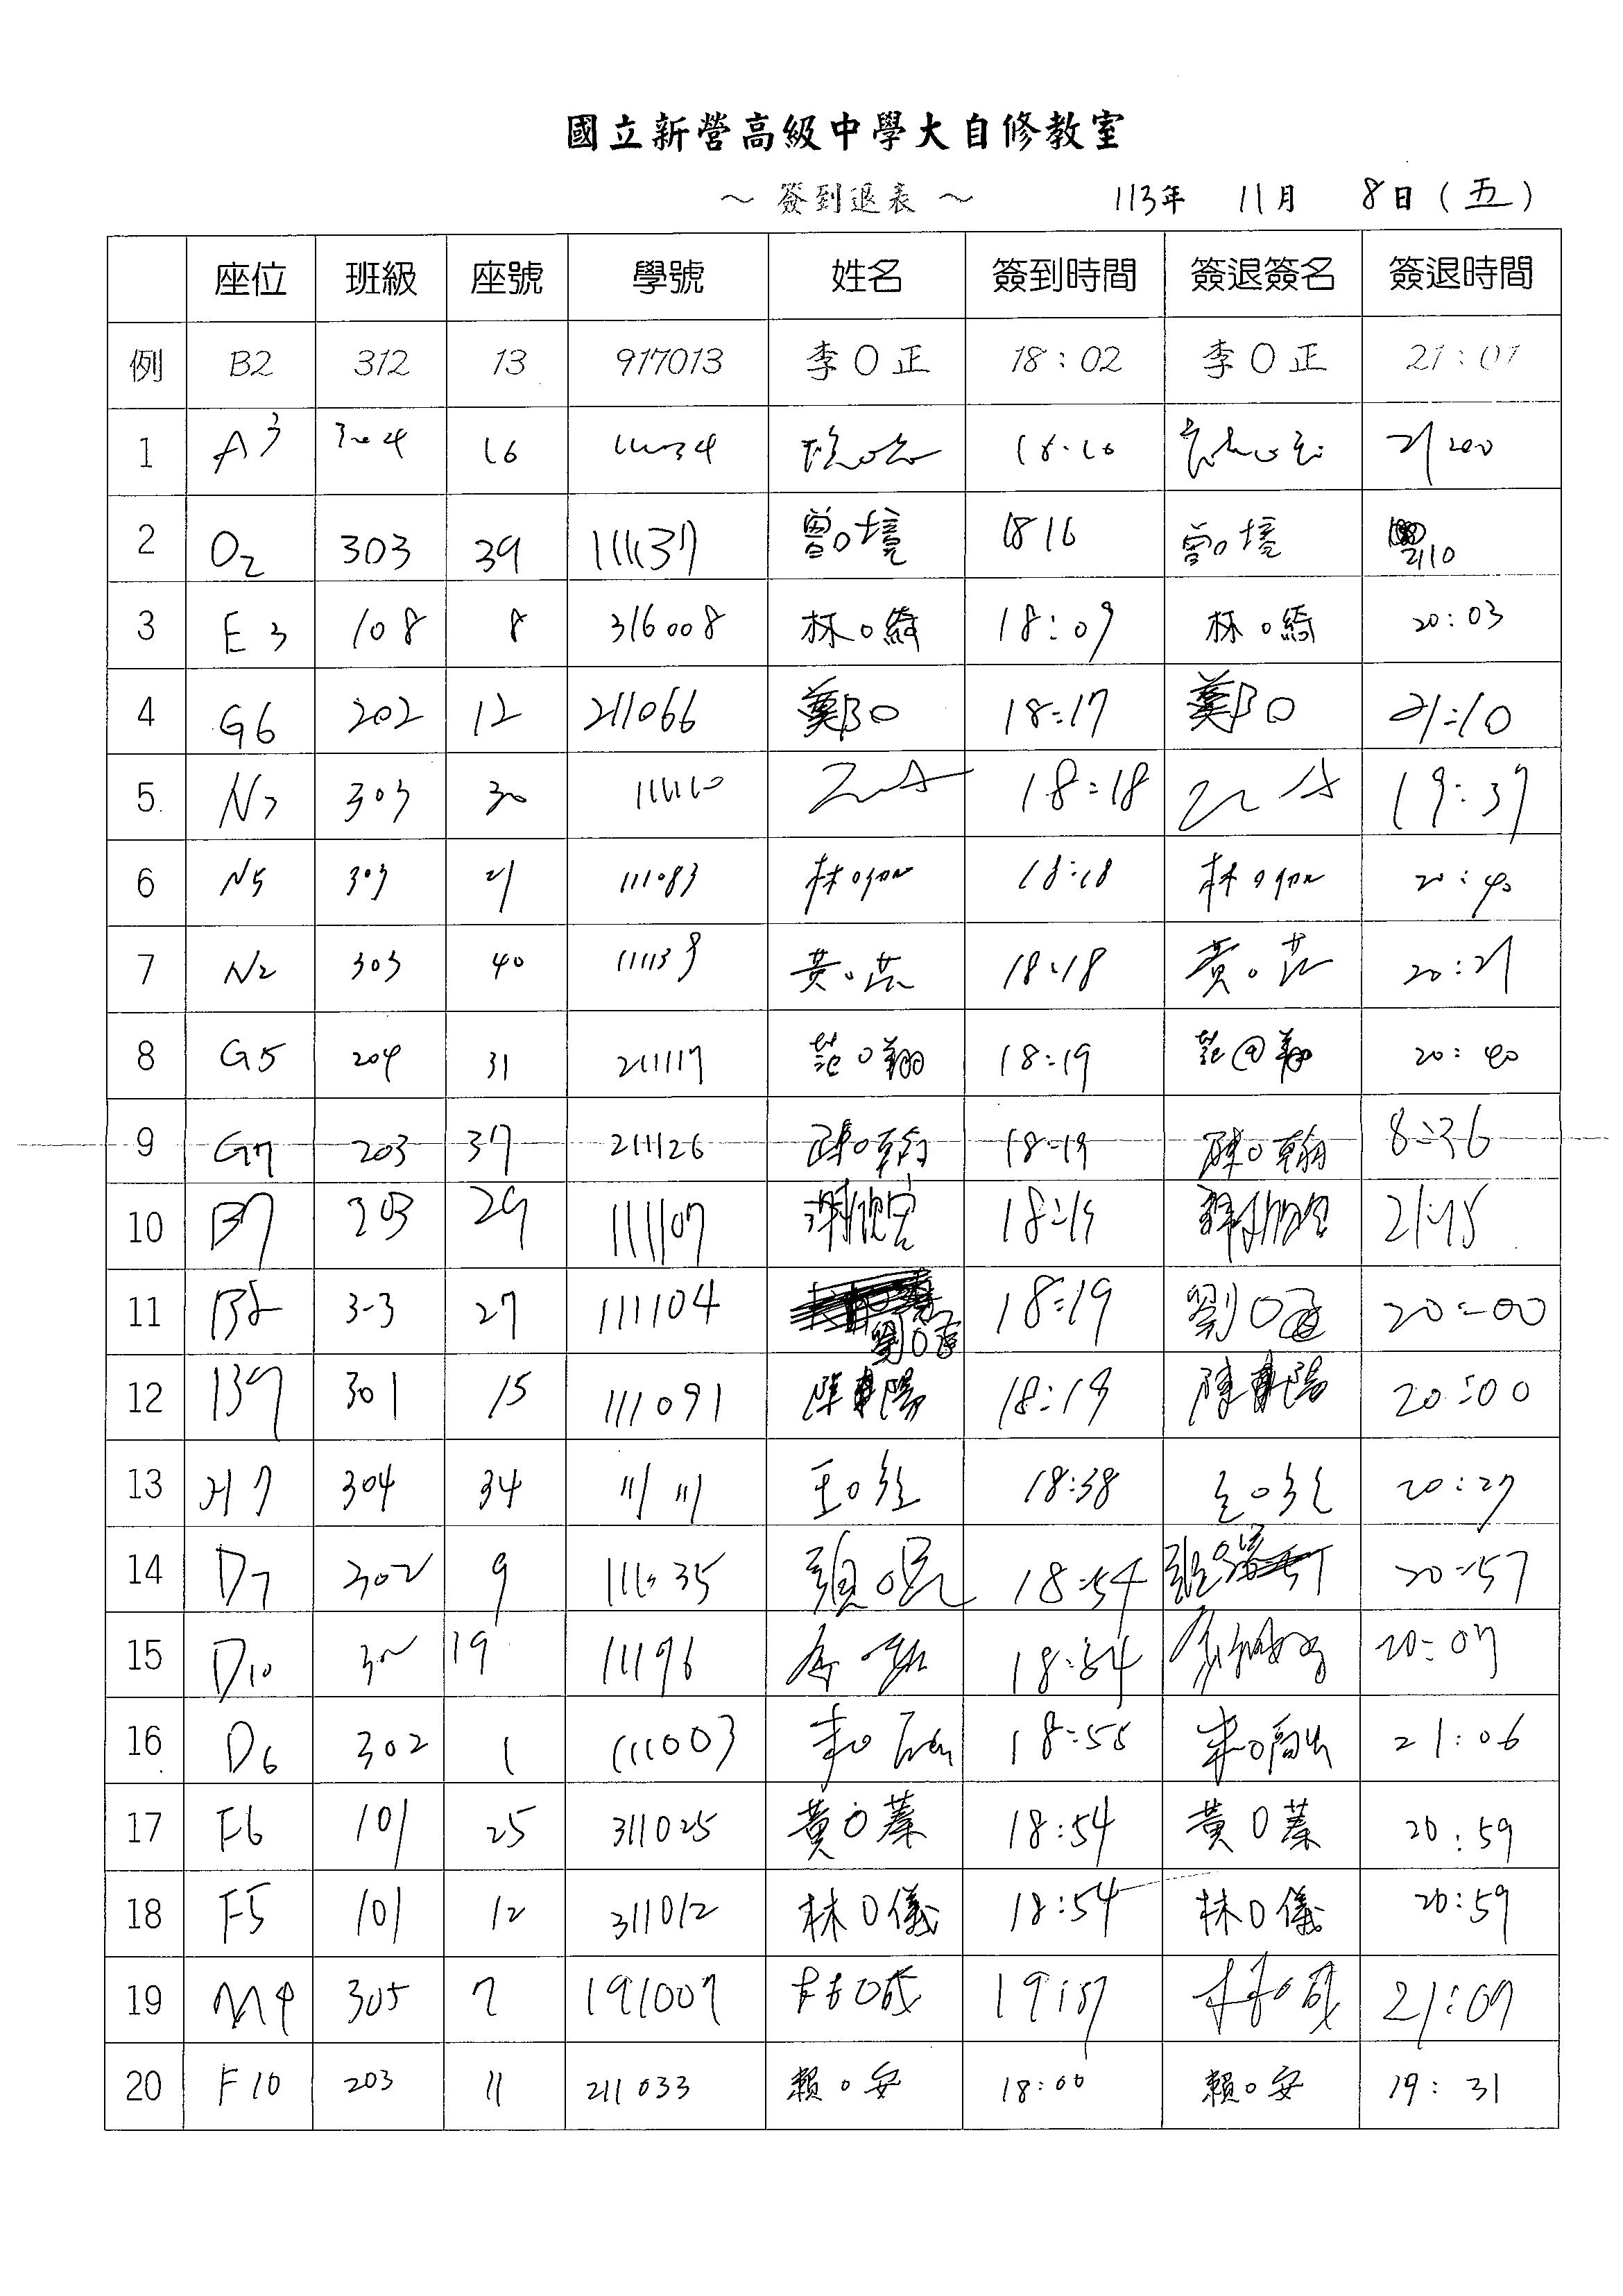 國立新營高級中學大自修教室
～ 簽到退表 ～ 113年 11月 8日(五)
座位 班級 座號 學號 姓名 簽到時間 簽退簽名 簽退時間
例 B2 312 13 917013 李O正 18:02 李O正 21:01
1 A3 304 16
2 O2 303 39 111137 曾O境 1816 曾O境 2110
3 E3 108 8 316008 林O綺 18:09 林O綺 20:03
4 G6 202 12 211066 鄭O 18:17 鄭O 21:10
5 303 30 18:18 19:37
6 N5 303 21 111083 林O 18:18 林O 20:40
7 N2 303 40 111139 黃O芸 18:18 黃O芸 20:21
8 G5 204 31 211117 范O翔 18:19 范O翔 20:40
9 G7 203 37 211126 陳O翰 18:19 陳O翰 8:36
10 B7 303 29 111107 18:19
11 B8 3-3 27 111104 劉O 18:19 劉O 20:00
12 301 15 111091 陳 陽 18:19 陳 陽 20:00
13 H7 304 34 111111 王O 18:38 20:27
14 D7 302 9 18:54 20:57
15 D10 19 11196 18:54 20:07
16 D6 302 1 111003 18:55 21:06
17 F6 101 25 311025 黃O蓁 18:54 黃O蓁 20:59
18 F5 101 12 311012 林O儀 18:54 林O儀 20:59
19 M4 305 7 191007 19:57 21:07
20 F10 203 11 211033 賴O安 18:00 賴O安 19:31